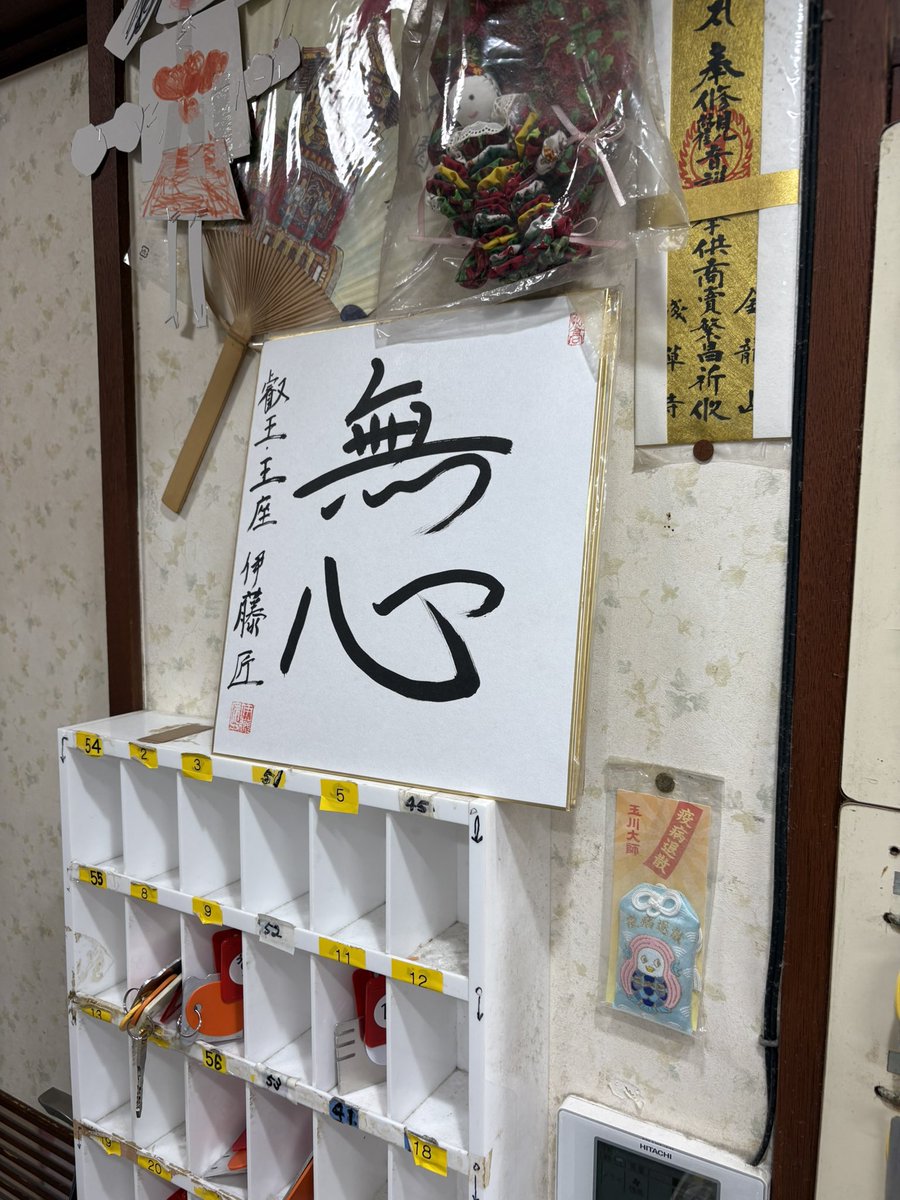 無心
叡王・王座 伊藤匠
奉修觀音
供商賣繁昌祈攸
金龍山
浅草寺
疫病退散
玉川大師
54
2
3
51
5
45
55
8
9
52
11
12
13
56
53
41
18
19
20
HITACHI